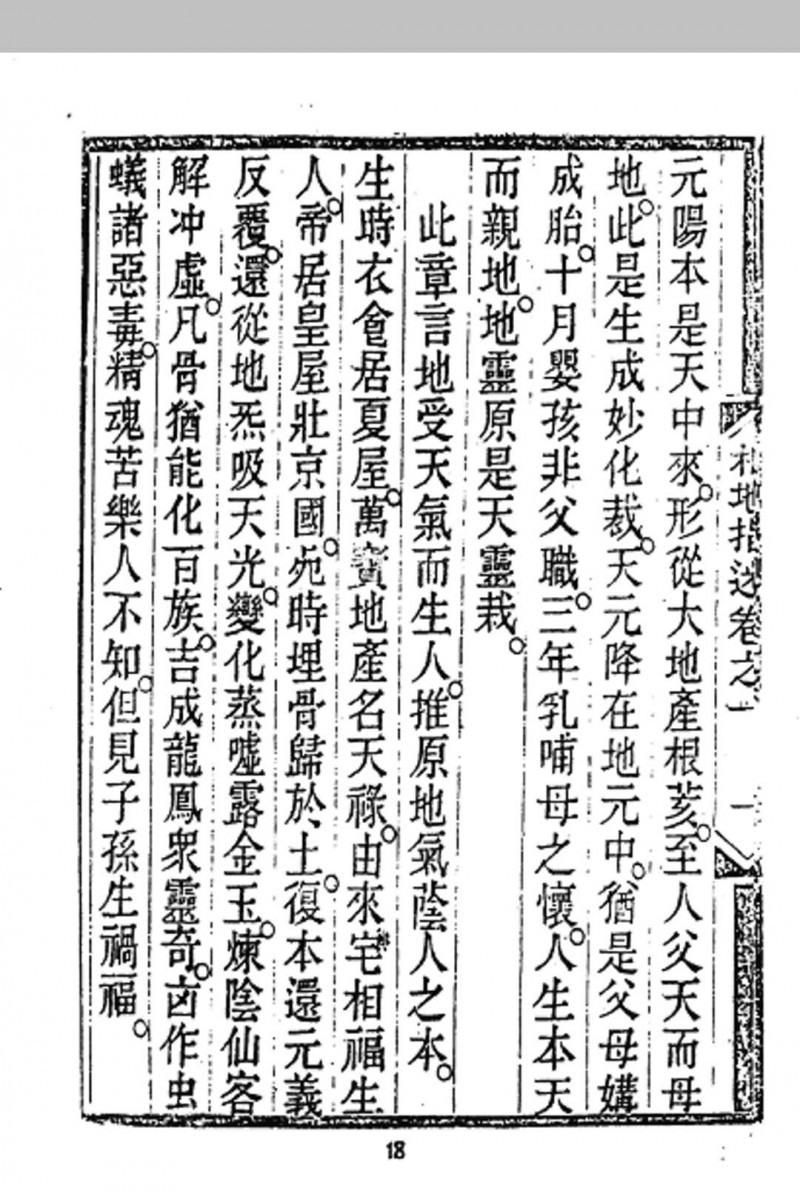 元陽本是天中來。形從大地產根荄。至人父天而母
地。此是生成妙化裁。天元降在地元中。猶是父母媾
成胎。十月嬰孩非父職。三年乳哺母之懷。人生本天
而親地。地靈原是天靈栽。
此章言地受天氣而生人。推原地氣蔭人之本。
生時衣食居夏屋。萬寶地產名天祿。由來宅相福生
人。帝居皇屋壯京國。死時埋骨歸於土。復本還元義
反覆。還從地炁吸天光。變化蒸噓露金玉。煉陰仙客
解冲虛。凡骨猶能化百族。吉成龍鳳衆靈奇。卤作虫
蟻諸惡毒。精魂苦樂人不知。但見子孫生禍福。
地指迷卷之一
一
18